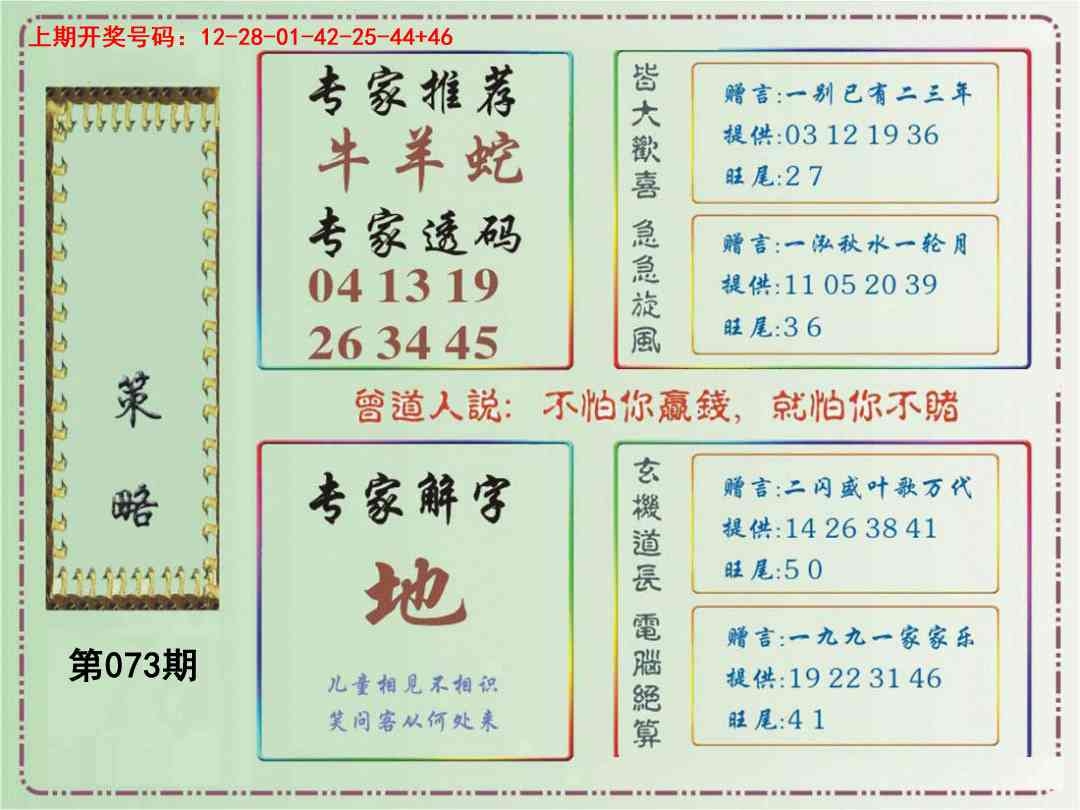 上期开奖号码：12-28-01-42-25-44+46
策略
第073期
专家推荐
牛羊蛇
专家透码
04 13 19
26 34 45
皆大歡喜
赠言:一别已有二三年
提供:03 12 19 36
旺尾:2 7
急急旋風
赠言:一泓秋水一轮月
提供:11 05 20 39
旺尾:3 6
曾道人説：不怕你赢錢，就怕你不賭
专家解字
地
儿童相见不相识
笑问客从何处来
玄機道長
赠言:二闪盛叶歌万代
提供:14 26 38 41
旺尾:5 0
電腦絕算
赠言:一九九一家家乐
提供:19 22 31 46
旺尾:4 1